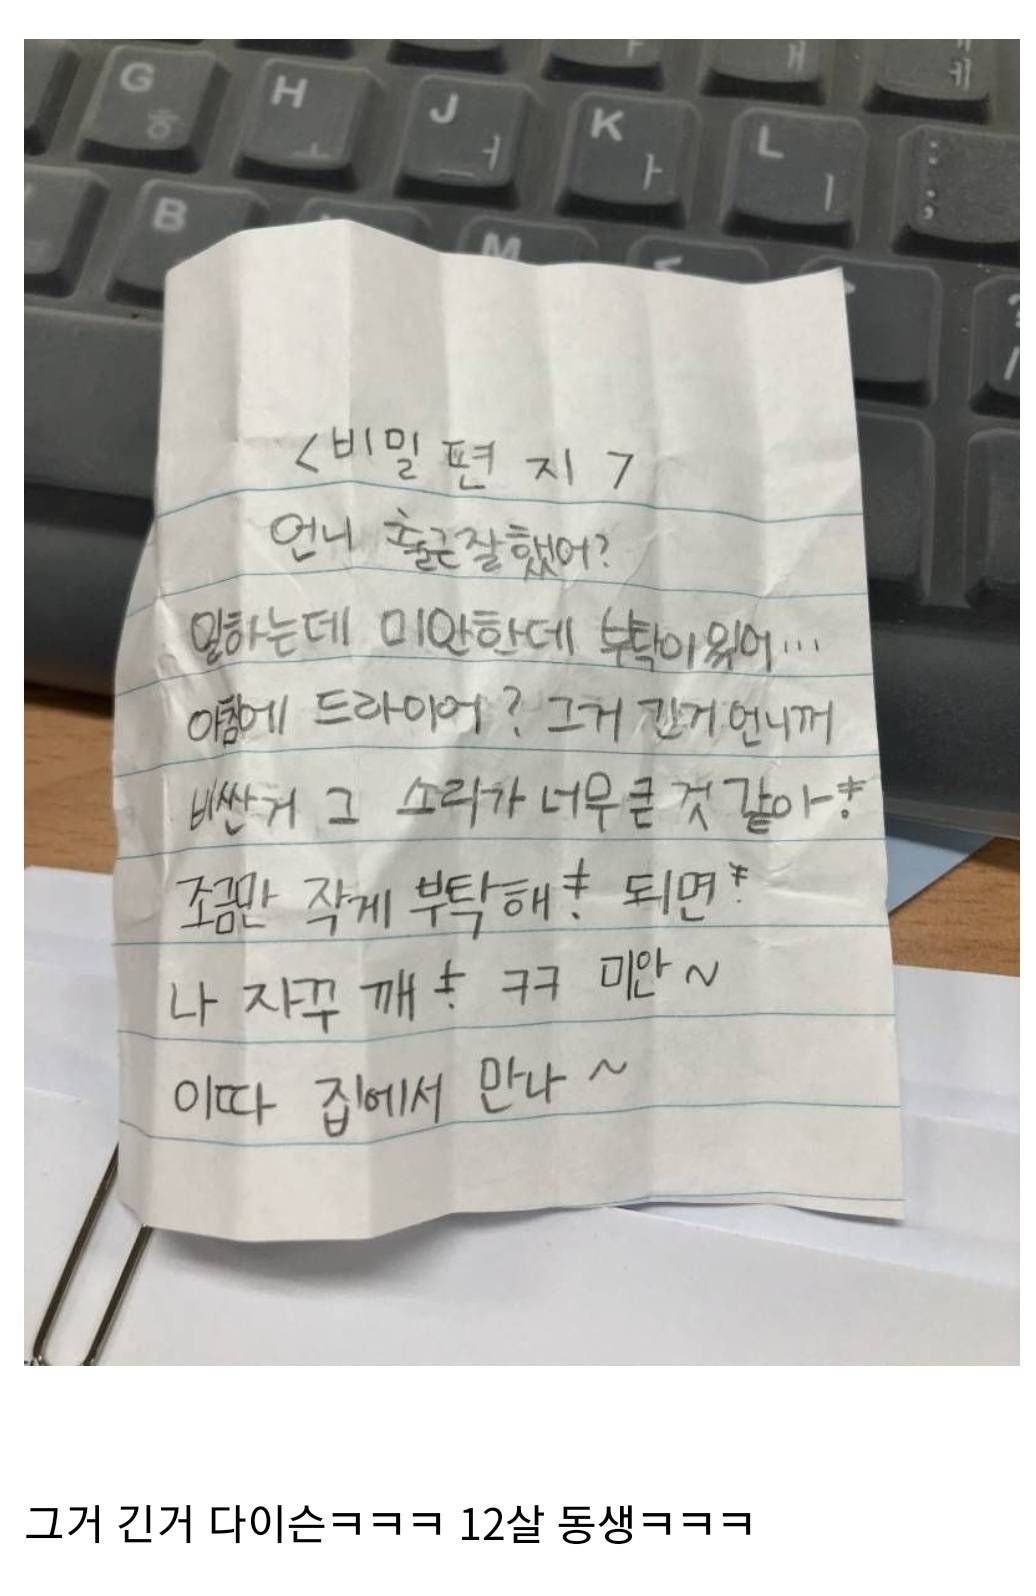 G ㅎ H ㅗ J ㅓ K ㅏ L ㅣ : ;
B M <
? /
<비밀 편 지 >
언니 출근잘했어?
일하는데 미안한데 부탁이있어...
아침에 드라이어? 그거 긴거 언니꺼
비싼거 그 소리가 너무 큰 것 같아ㅠ
조금만 작게 부탁해ㅠ 되면ㅠ
나 자꾸 깨ㅠ ㅋㅋ 미안~
이따 집에서 만나~
그거 긴거 다이슨ㅋㅋㅋ 12살 동생ㅋㅋㅋ